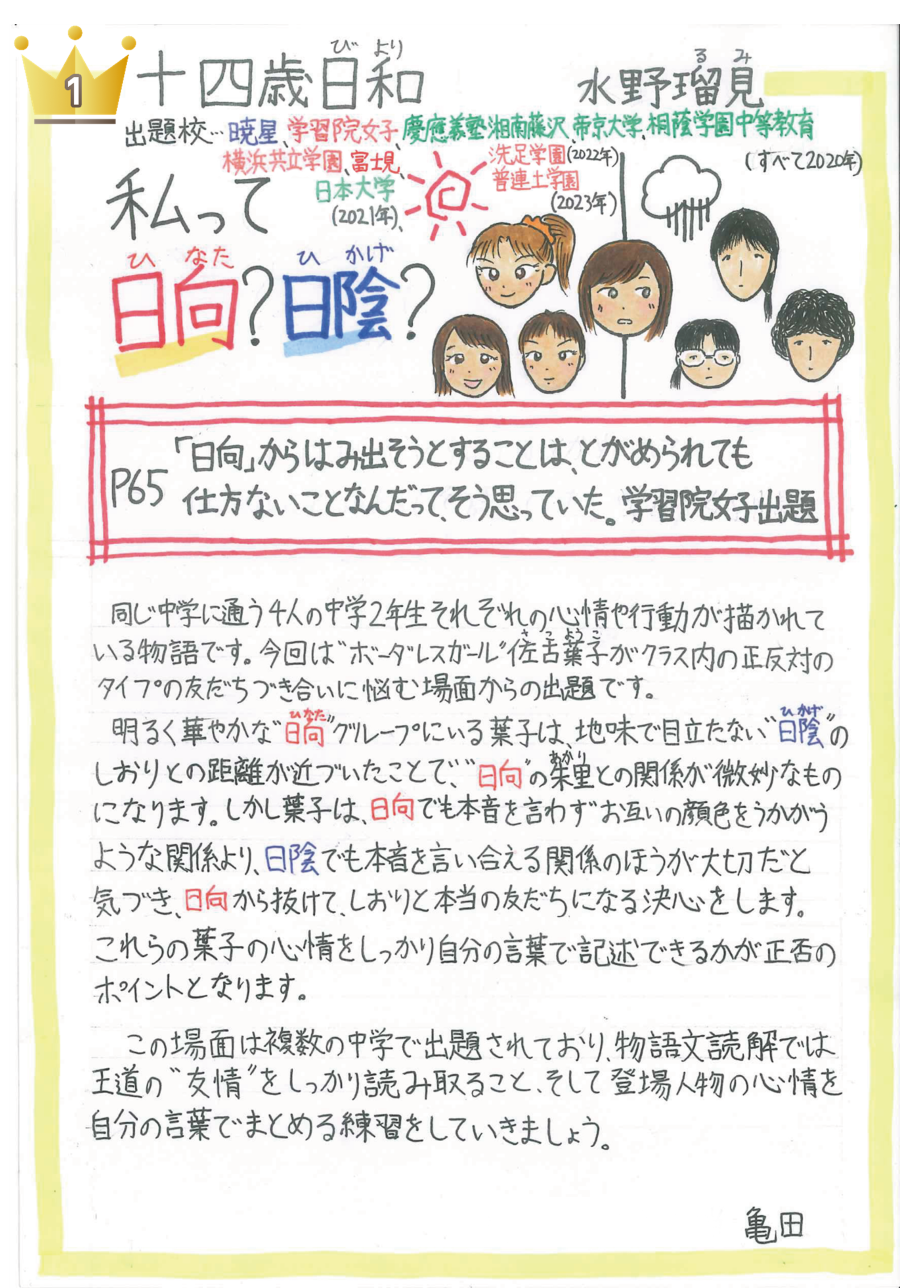 1
十四歳日和
びより
水野瑠見
るみ
出題校…暁星、学習院女子、慶應義塾湘南藤沢、帝京大学、桐蔭学園中等教育
横浜共立学園、富士見、
(すべて2020年)
日本大学
(2021年)、
洗足学園(2022年)
普連土学園
(2023年)
私って
ひなた ひかげ
日向?日陰?
P65
「日向」からはみ出そうとすることは、とがめられても
仕方ないことなんだって、そう思っていた。学習院女子出題
同じ中学に通う4人の中学2年生それぞれの心情や行動が描かれて
さこようこ
いる物語です。今回は“ボーダレスガール”佐古葉子がクラス内の正反対の
タイプの友だちづき合いに悩む場面からの出題です。
ひなた ひかげ
明るく華やかな“日向”グループにいる葉子は、地味で目立たない“日陰”の
あかり
しおりとの距離が近づいたことで、“日向”の朱里との関係が微妙なもの
になります。しかし葉子は、日向でも本音を言わずお互いの顔色をうかがう
ような関係より、日陰でも本音を言い合える関係のほうが大切だと
気づき、日向から抜けて、しおりと本当の友だちになる決心をします。
これらの葉子の心情をしっかり自分の言葉で記述できるかが正否の
ポイントとなります。
この場面は複数の中学で出題されており、物語文読解では
王道の“友情”をしっかり読み取ること、そして登場人物の心情を
自分の言葉でまとめる練習をしていきましょう。
亀田